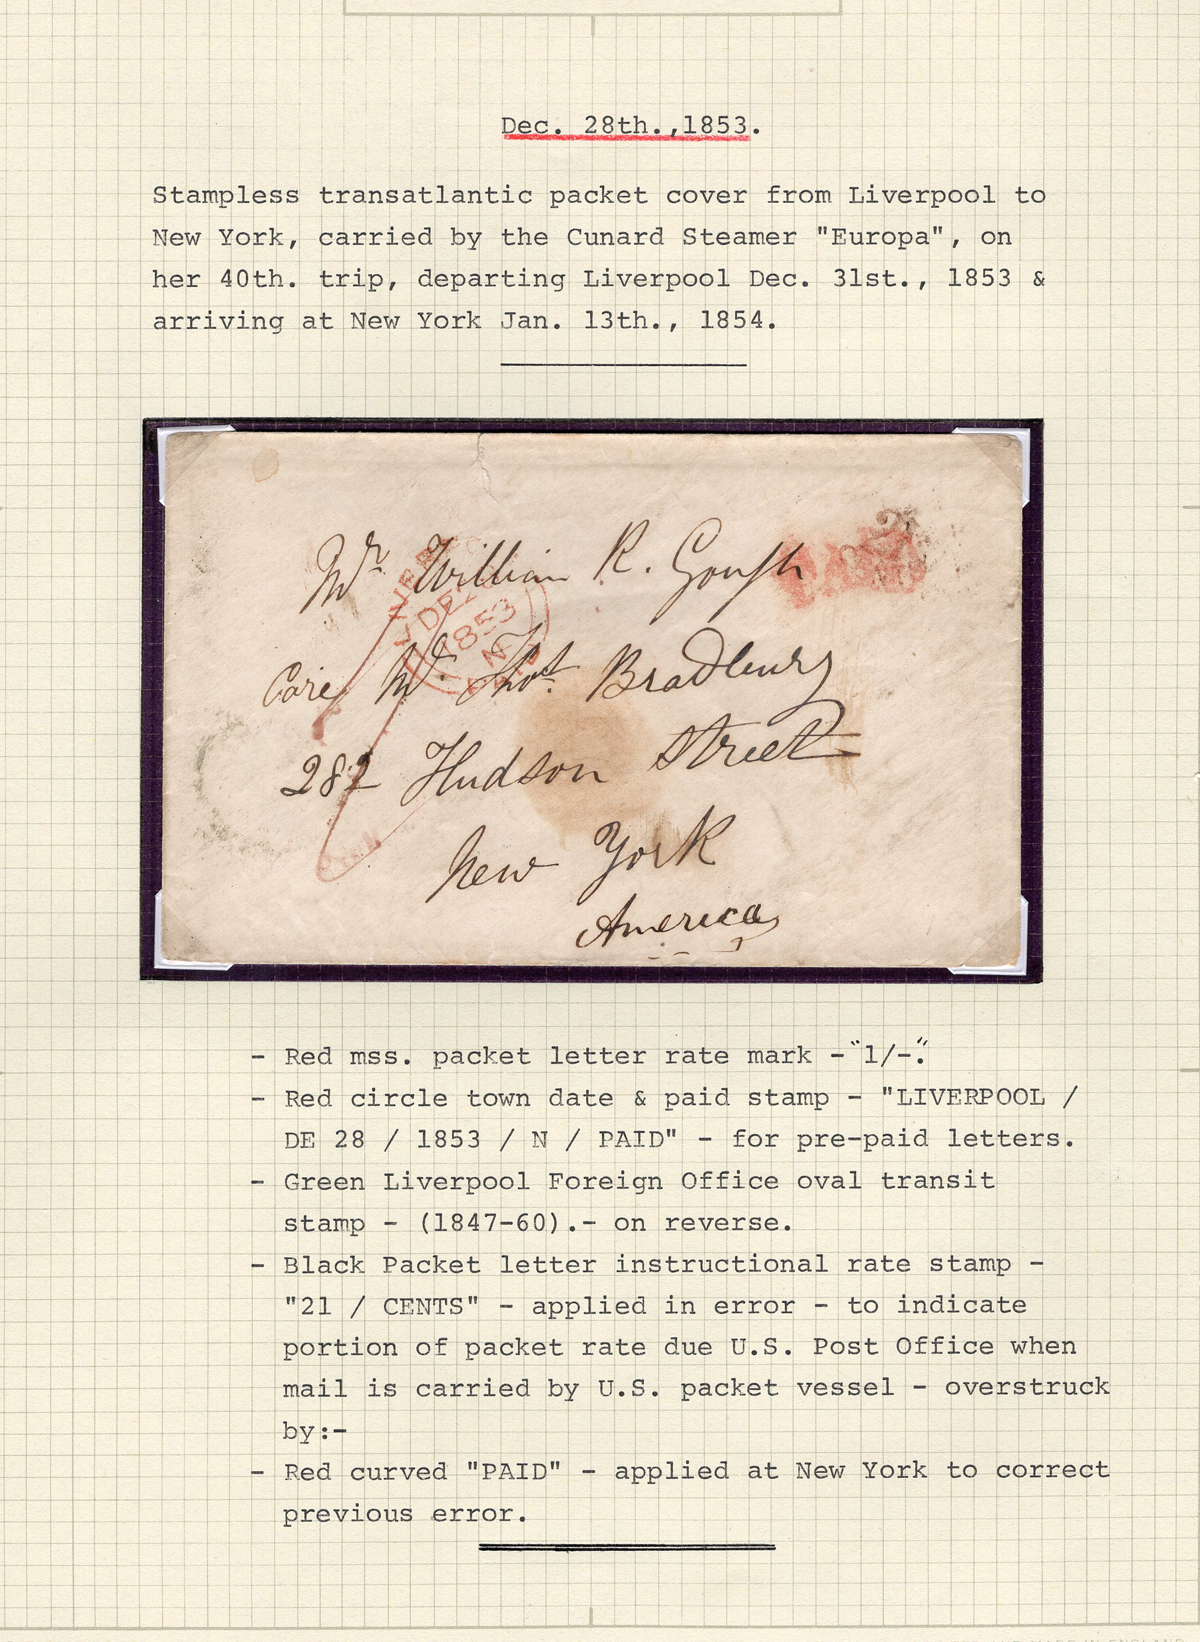 Dec. 28th.,1853.
Stampless transatlantic packet cover from Liverpool to
New York, carried by the Cunard Steamer "Europa", on
her 40th. trip, departing Liverpool Dec. 31st., 1853 &
arriving at New York Jan. 13th., 1854.
Mr. William R. Gough
Care Mr. Thos. Bradbury
282 Hudson Street
New York
America
DE
1853
N
- Red mss. packet letter rate mark -"1/-".
- Red circle town date & paid stamp - "LIVERPOOL /
DE 28 / 1853 / N / PAID" - for pre-paid letters.
- Green Liverpool Foreign Office oval transit
stamp - (1847-60).- on reverse.
- Black Packet letter instructional rate stamp -
"21 / CENTS" - applied in error - to indicate
portion of packet rate due U.S. Post Office when
mail is carried by U.S. packet vessel - overstruck
by:-
- Red curved "PAID" - applied at New York to correct
previous error.